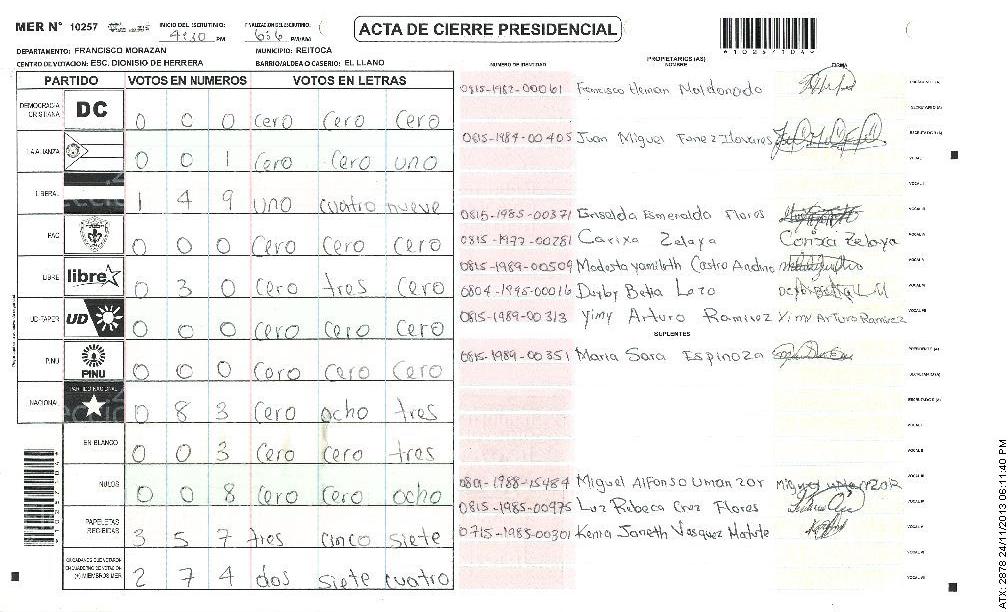 MER N° 10257
INICIO DEL ESCRUTINIO: 4:30 PM
FINALIZACION DEL ESCRUTINIO: 6:6 PM/AM
ACTA DE CIERRE PRESIDENCIAL
DEPARTAMENTO: FRANCISCO MORAZAN
MUNICIPIO: REITOCA
CENTRO DE VOTACION: ESC. DIONISIO DE HERRERA
BARRIO/ALDEA O CASERIO: EL LLANO
PARTIDO VOTOS EN NUMEROS VOTOS EN LETRAS
DEMOCRACIA CRISTIANA DC 0 0 0 cero cero cero
LA ALIANZA 0 0 1 cero cero uno
LIBERAL 1 4 9 uno cuatro nueve
PAC 0 0 0 cero cero cero
LIBRE libre 0 3 0 cero tres cero
UD-FAPER UD 0 0 0 cero cero cero
PINU PINU 0 0 0 cero cero cero
NACIONAL PARTIDO NACIONAL 0 8 3 cero ocho tres
EN BLANCO 0 0 3 cero cero tres
NULOS 0 0 8 cero cero ocho
PAPELETAS RECIBIDAS 3 5 7 tres cinco siete
CIUDADANOS QUE VOTARON EN CUADERNO DE VOTACION (+) MIEMBROS MER 2 7 4 dos siete cuatro
NUMERO DE IDENTIDAD
PROPIETARIOS (AS)
NOMBRE
FIRMA
0815-1982-00061 Francisco Hernan Maldonado
0815-1984-00405 Juan Miguel
0815-1985-00371 Griselda Esmeralda Flores
0815-1977-00281 Carixa Zelaya Carixa Zelaya
0815-1989-00509 Modesta Yamileth Castro Andino
0804-1995-00016 Deyby
0815-1989-00313 Yimy Arturo Ramirez Yimy Arturo Ramirez
SUPLENTES
0815-1989-00351 Maria Sara Espinoza
0801-1988-15484 Miguel Alfonso Umanzor
0815-1985-00975 Luz Rebeca Cruz Flores
0715-1985-00301 Kenia Janeth Vasquez Matute
ATX: 2878 24/11/2013 06:11:40 PM